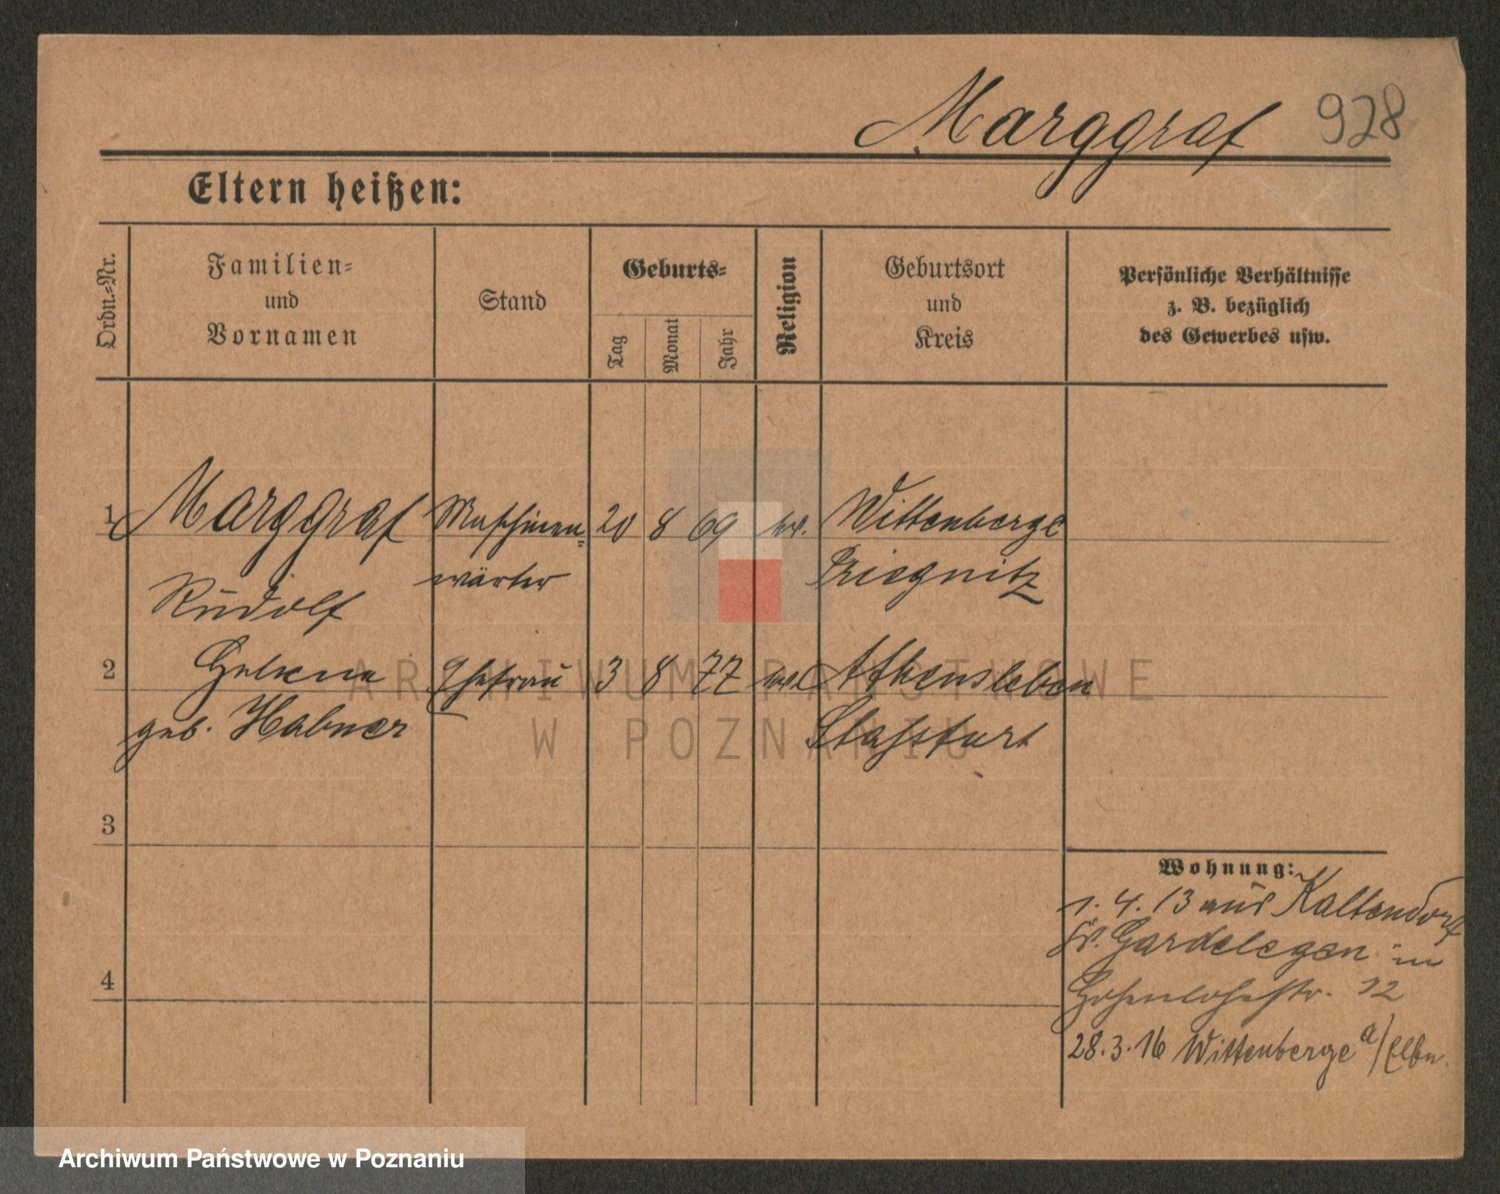 Marggraf 928
Eltern heißen:
Ordn.-Nr.
Familien-
und
Vornamen
Stand
Geburts-
Tag
Monat
Jahr
Religion
Geburtsort
und
Kreis
Persönliche Verhältnisse
z. B. bezüglich
des Gewerbes usw.
1 Marggraf Maschinen- 20 8 69 ev. Wittenberge
Rudolf wärter Priegnitz
2 Helene Ehefrau 3 8 77 ev. Athensleben
geb. Habner Stassfurt
3
4
Wohnung:
1. 4. 13 aus Kaltendorf
Kr. Gardelegen in
Hohenlohestr. 12
28.3.16 Wittenberge a/Elbe
ARCHIWUM PAŃSTWOWE
W POZNANIU
Archiwum Państwowe w Poznaniu